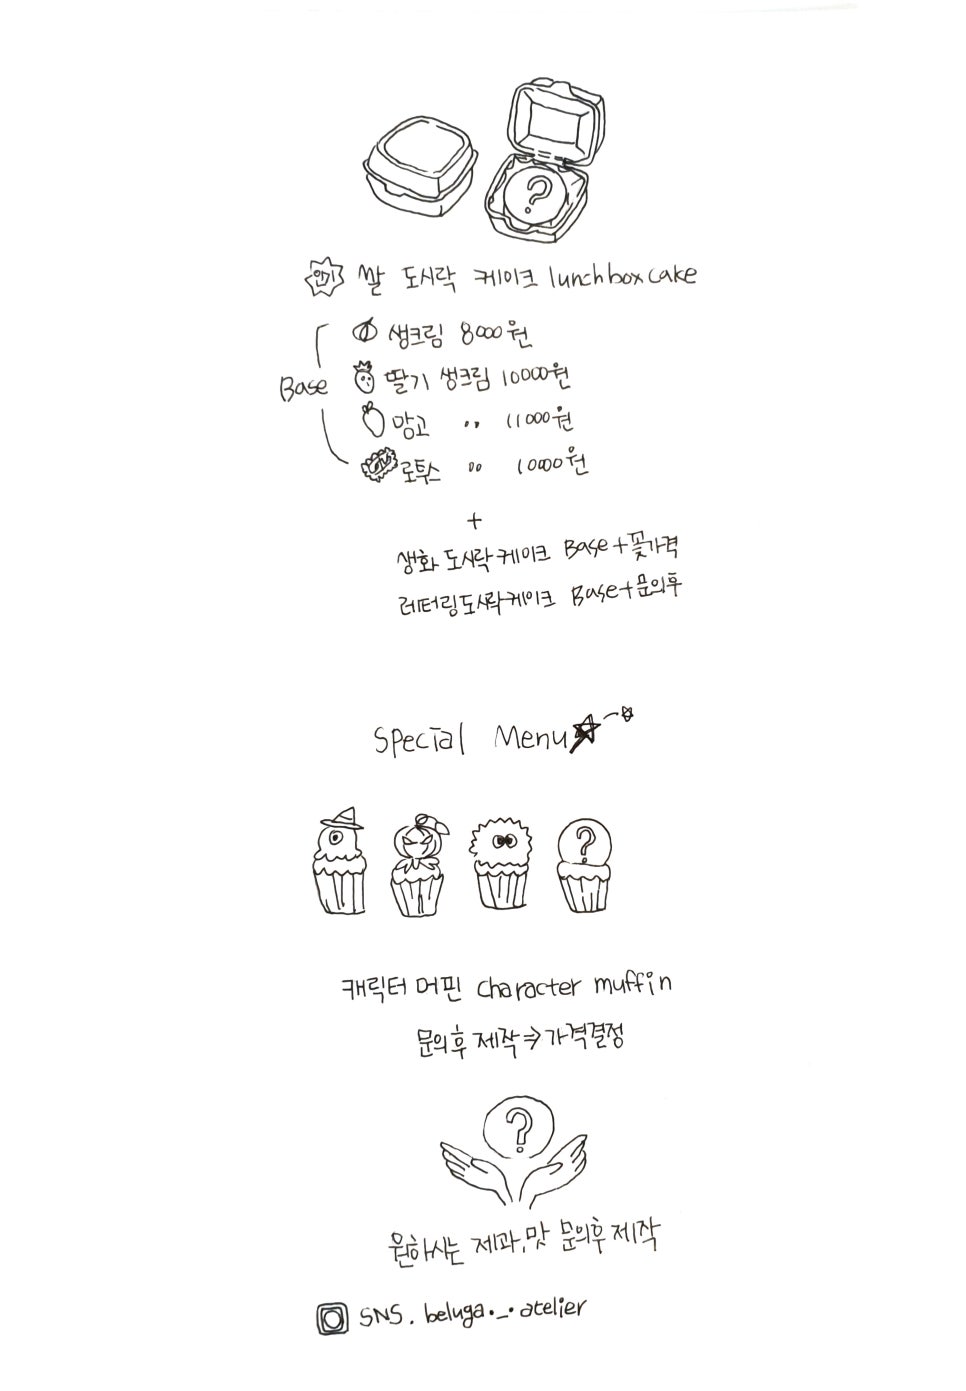 인기 쌀 도시락 케이크 lunchbox cake
생크림 8000원
Base
딸기 생크림 10000원
망고 〃 11000원
로투스 〃 10000원
+
생화 도시락 케이크 Base+꽃가격
레터링도시락케이크 Base+문의후
Special Menu
?
캐릭터 머핀 character muffin
문의후 제작⇒가격결정
?
원하시는 제과,맛 문의후 제작
SNS. beluga._.atelier